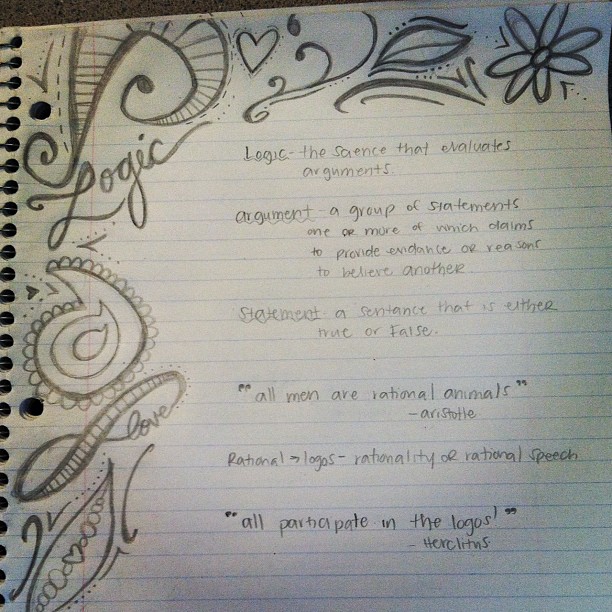 Logic
Logic - the science that evaluates
arguments.
argument - a group of statements
one or more of which claims
to provide evidance or reasons
to believe another
Statement - a sentence that is either
true or False.
"all men are rational animals"
- aristotle
love
Rational → logos - rationality or rational speech
"all participate in the logos"
- Herclitus